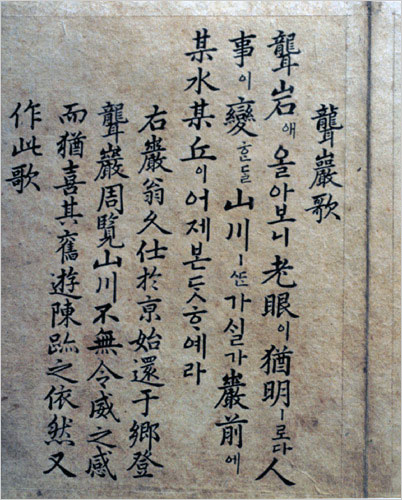 聾巖歌
聾岩애올아보니老眼이猶明ㅣ로다人
事이變ᄒᆞᆫᄃᆞᆯ山川ㅣᄯᆞᆫ가실가巖前에
某水某丘이어제본ᄃᆞᆺᄒᆞ예라
右巖翁久仕於亰始還于鄕登
聾巖周覽山川不無令威之感
而猶喜其舊遊陳跡之依然又
作此歌